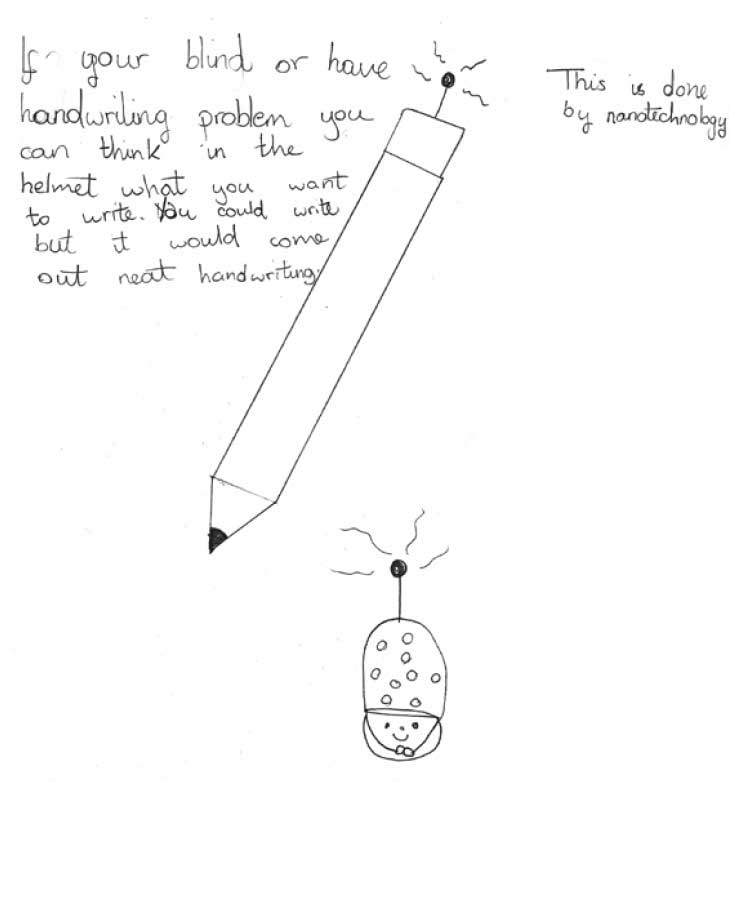 If your blind or have
handwriting problem you
can think in the
helmet what you want
to write. You could write
but it would come
out neat handwriting.
This is done
by nanotechnology